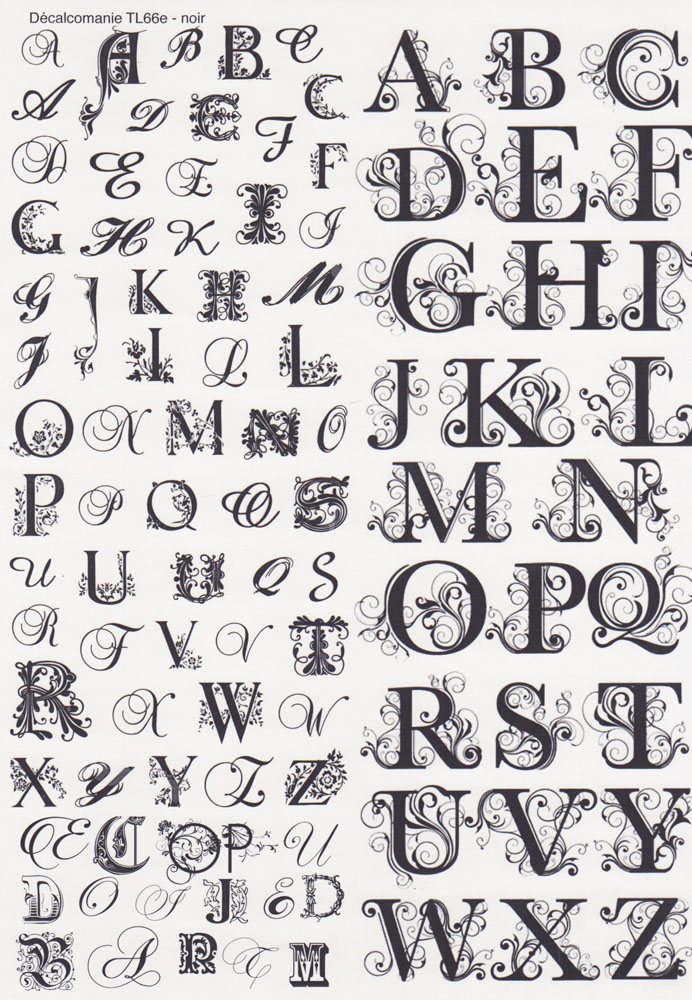 Décalcomanie TL66e - noir
A A B B C
A D E C
F
D E E I F
G H K I
G J K H M
J I L L
O N M N O
P P Q S
U U U Q S
R F V V T
R X W W
X Y Y Z Z
E C O P U
D O I J E D
B A R T M
A B C
D E F
G H I
J K L
M N
O P Q
R S T
U V Y
W X Z